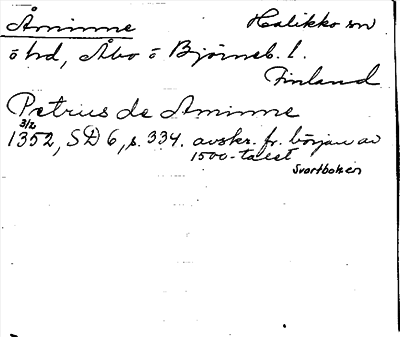 Åminne Halikko sn
ö hd, Åbo ö Björneb. l.
Finland
Petrus de Aminne
3/2
1352, SD 6, s. 334. avskr. fr. början av
1500-talet
Svartboken